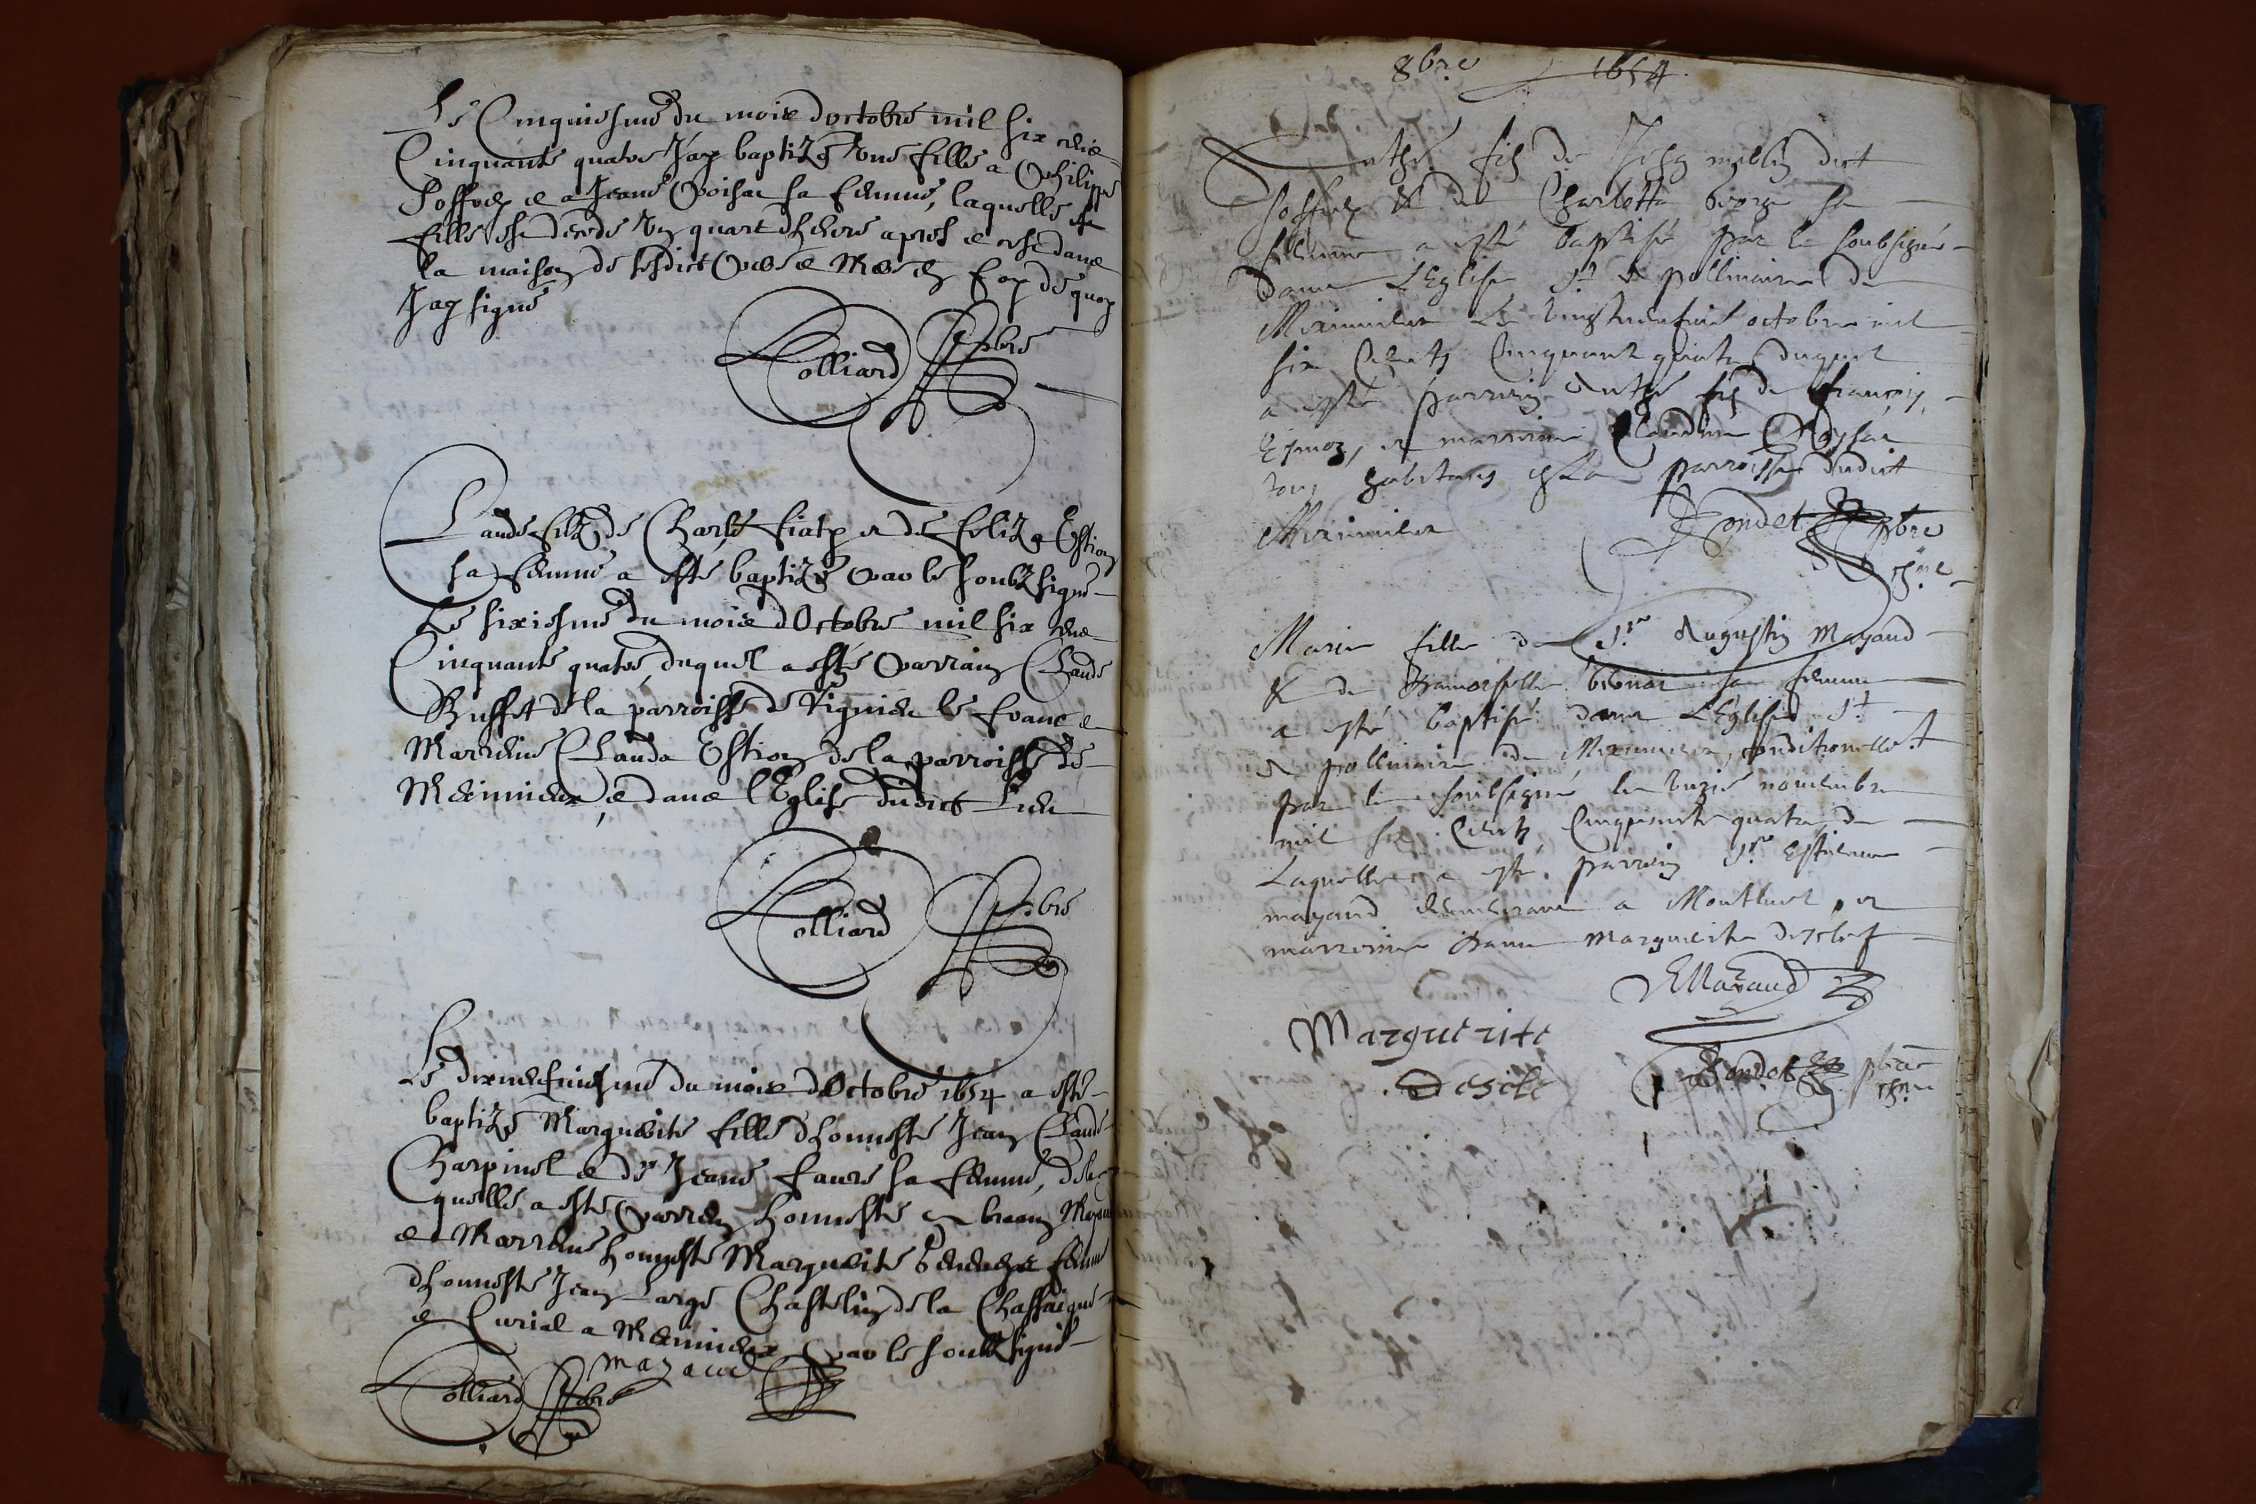 Le Cinquiesme du mois doctobre mil six cens
Cinquante quatre Jay baptizé Une fille a Philippe
Joffrey e a Jeane Voisar sa femme, laquelle
fille est decede Un quart dheure apres e cest dans
la maison de sesdicts Pere e Mere en foy de quoy
Jay signé
Colliard Pbre
Claude filz de Charle fiaty et de feliz e Estion
sa femme a esté baptizé par le soubzsigné
Le sixiesme du mois dOctobre mil six cens
Cinquante quatre, duquel a esté parrain Claude
Buffet de la parroisse de Rignieu le franc e
Marreine Clauda Estion de la parroisse de
Meximieux, e dans l'Eglise dudict Lieu
Colliard Pbre
Le dixneufuiesme du mois dOctobre 1654 a esté
baptizé Marguerite fille dhonneste Jean Claude
Charpinel e de Jeane faure sa femme, de la
quelle a esté parrein honneste
e Marreine honneste Marguerite femme
dhonneste Jean Large Chastelain de la Chassaigne
e Curial a Meximieux par le soubzsigné
mayaud
Colliard Pbre
8bre 1654
Anthé filz de Jehan dict
Joffrey & de Charlotte George sa
femme a esté baptisé par le soubsigné
dans L'Eglise St Apollinaire de
Meximieux Le vingtneufuie octobre mil
six Cents Cinquante quatre duquel
a esté parrain Anthe filz de François
et marreine Claudine Voysar
tous habitans en la parroisse dudict
Meximieux
Gondet pbre
Marie fille de Sr Augustin Mayaud
& de Damoiselle sa femme
a esté baptisé dans L'Eglise St
Apollinaire de Meximieux, conditionellet
par le soubsigné le unzie nouembre
mil six Cents Cinquante quatre de
Laquelle a esté parrein Sr Estienne
mayaud demeurant a Montluel, et
marreine dame Marguerite descles
EMayaud
Marguerite
descle
Gondet pbre